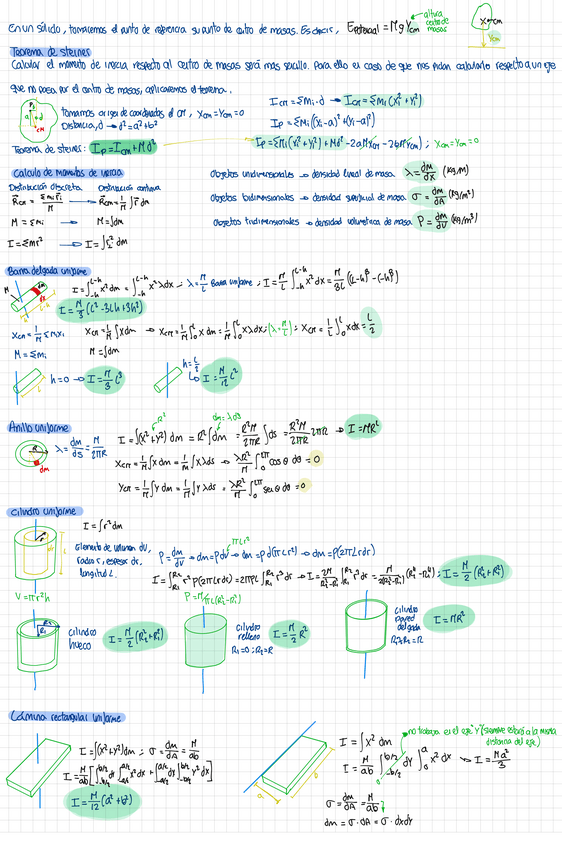 En un sólido, tomaremos el punto de referencia su punto de centro de masas. Es decir, Epotencial = M g Ycm
altura centro de masas
X cm
Ycm
Teorema de steiner
Calcular el momento de inercia respecto al centro de masas será más sencillo. Para ello en caso de que nos pidan calcularlo respecto a un eje
que no pasa por el centro de masas, aplicaremos el teorema.
tomamos origen de coordenadas el CM, Xcm = Ycm = 0
Distancia, d → d² = a² + b²
Teorema de steiner: Ip = Icm + Md²
Icm = Σmi·d → Icm = Σmi (xi² + yi²)
Ip = Σmi ((xi-a)² + (yi-a)²)
Ip = Σmi (xi² + yi²) + Md² - 2aMXcm - 2bMYcm ; Xcm = Ycm = 0
Calculo de momentos de inercia
Distribución discreta Distribución continua
Rcm = Σmi ri / M → Rcm = 1/M ∫ r dm
M = Σmi → M = ∫dm
I = Σmr² → I = ∫r² dm
Objetos unidimensionales → densidad lineal de masa λ = dm/dx (kg/m)
Objetos bidimensionales → densidad superficial de masa σ = dm/dA (kg/m²)
Objetos tridimensionales → densidad volumétrica de masa ρ = dm/dV (kg/m³)
Barra delgada uniforme
I = ∫_{-h}^{L-h} x² dm = ∫_{-h}^{L-h} x² λdx ; λ = M/L Barra uniforme ; I = M/L ∫_{-h}^{L-h} x² dx = M/3L ((L-h)³ - (-h)³)
I = M/3 (L² - 3Lh + 3h²)
Xcm = 1/M Σmixi Xcm = 1/M ∫xdm → Xcm = 1/M ∫_0^L x dm = 1/M ∫_0^L xλdx ; (λ = M/L) ; Xcm = 1/L ∫_0^L xdx = L/2
M = Σmi M = ∫dm
h = 0 → I = M/3 L²
h = L/2
I = M/12 L²
Anillo uniforme
λ = dm/ds = M/2πR
R²
dm = λds
I = ∫(x² + y²) dm = R² ∫dm = R²M/2πR ∫ds = R²M/2πR 2πR → I = MR²
Xcm = 1/M ∫x dm = 1/M ∫xλds → λR²/M ∫_0^{2π} cos θ dθ = 0
Ycm = 1/M ∫y dm = 1/M ∫yλds = λR²/M ∫_0^{2π} sen θ dθ = 0
Cilindro uniforme
I = ∫r² dm
Elemento de volumen dV,
radio r, espesor dr,
longitud L.
πLr²
ρ = dm/dV → dm = ρdV → dm = ρ d(πLr²) → dm = ρ(2πLrdr)
I = ∫_{R1}^{R2} r² ρ(2πLrdr) = 2πρL ∫_{R1}^{R2} r³ dr → I = M/2 (R1² + R2²)
V = πr²h
ρ = M/πL(R2² - R1²)
cilindro hueco
I = M/2 (R1² + R2²)
cilindro relleno
R1 = 0 ; R2 = R
I = M/2 R²
cilindro pared delgada
R1 = R2 = R
I = MR²
Lámina rectangular uniforme
I = ∫(x² + y²)dm ; σ = dm/dA = M/ab
I = M/ab [∫_{-b/2}^{b/2} dy ∫_{-a/2}^{a/2} x² dx + ∫_{-a/2}^{a/2} dx ∫_{-b/2}^{b/2} y² dx]
I = M/12 (a² + b²)
a
b
I = ∫x² dm
no trabaja en el eje "y" (siempre estará a la misma distancia del eje)
I = M/ab ∫_{-b/2}^{b/2} dy ∫_0^a x² dx → I = Ma²/3
σ = dm/dA = M/ab
dm = σ·dA = σ·dxdy